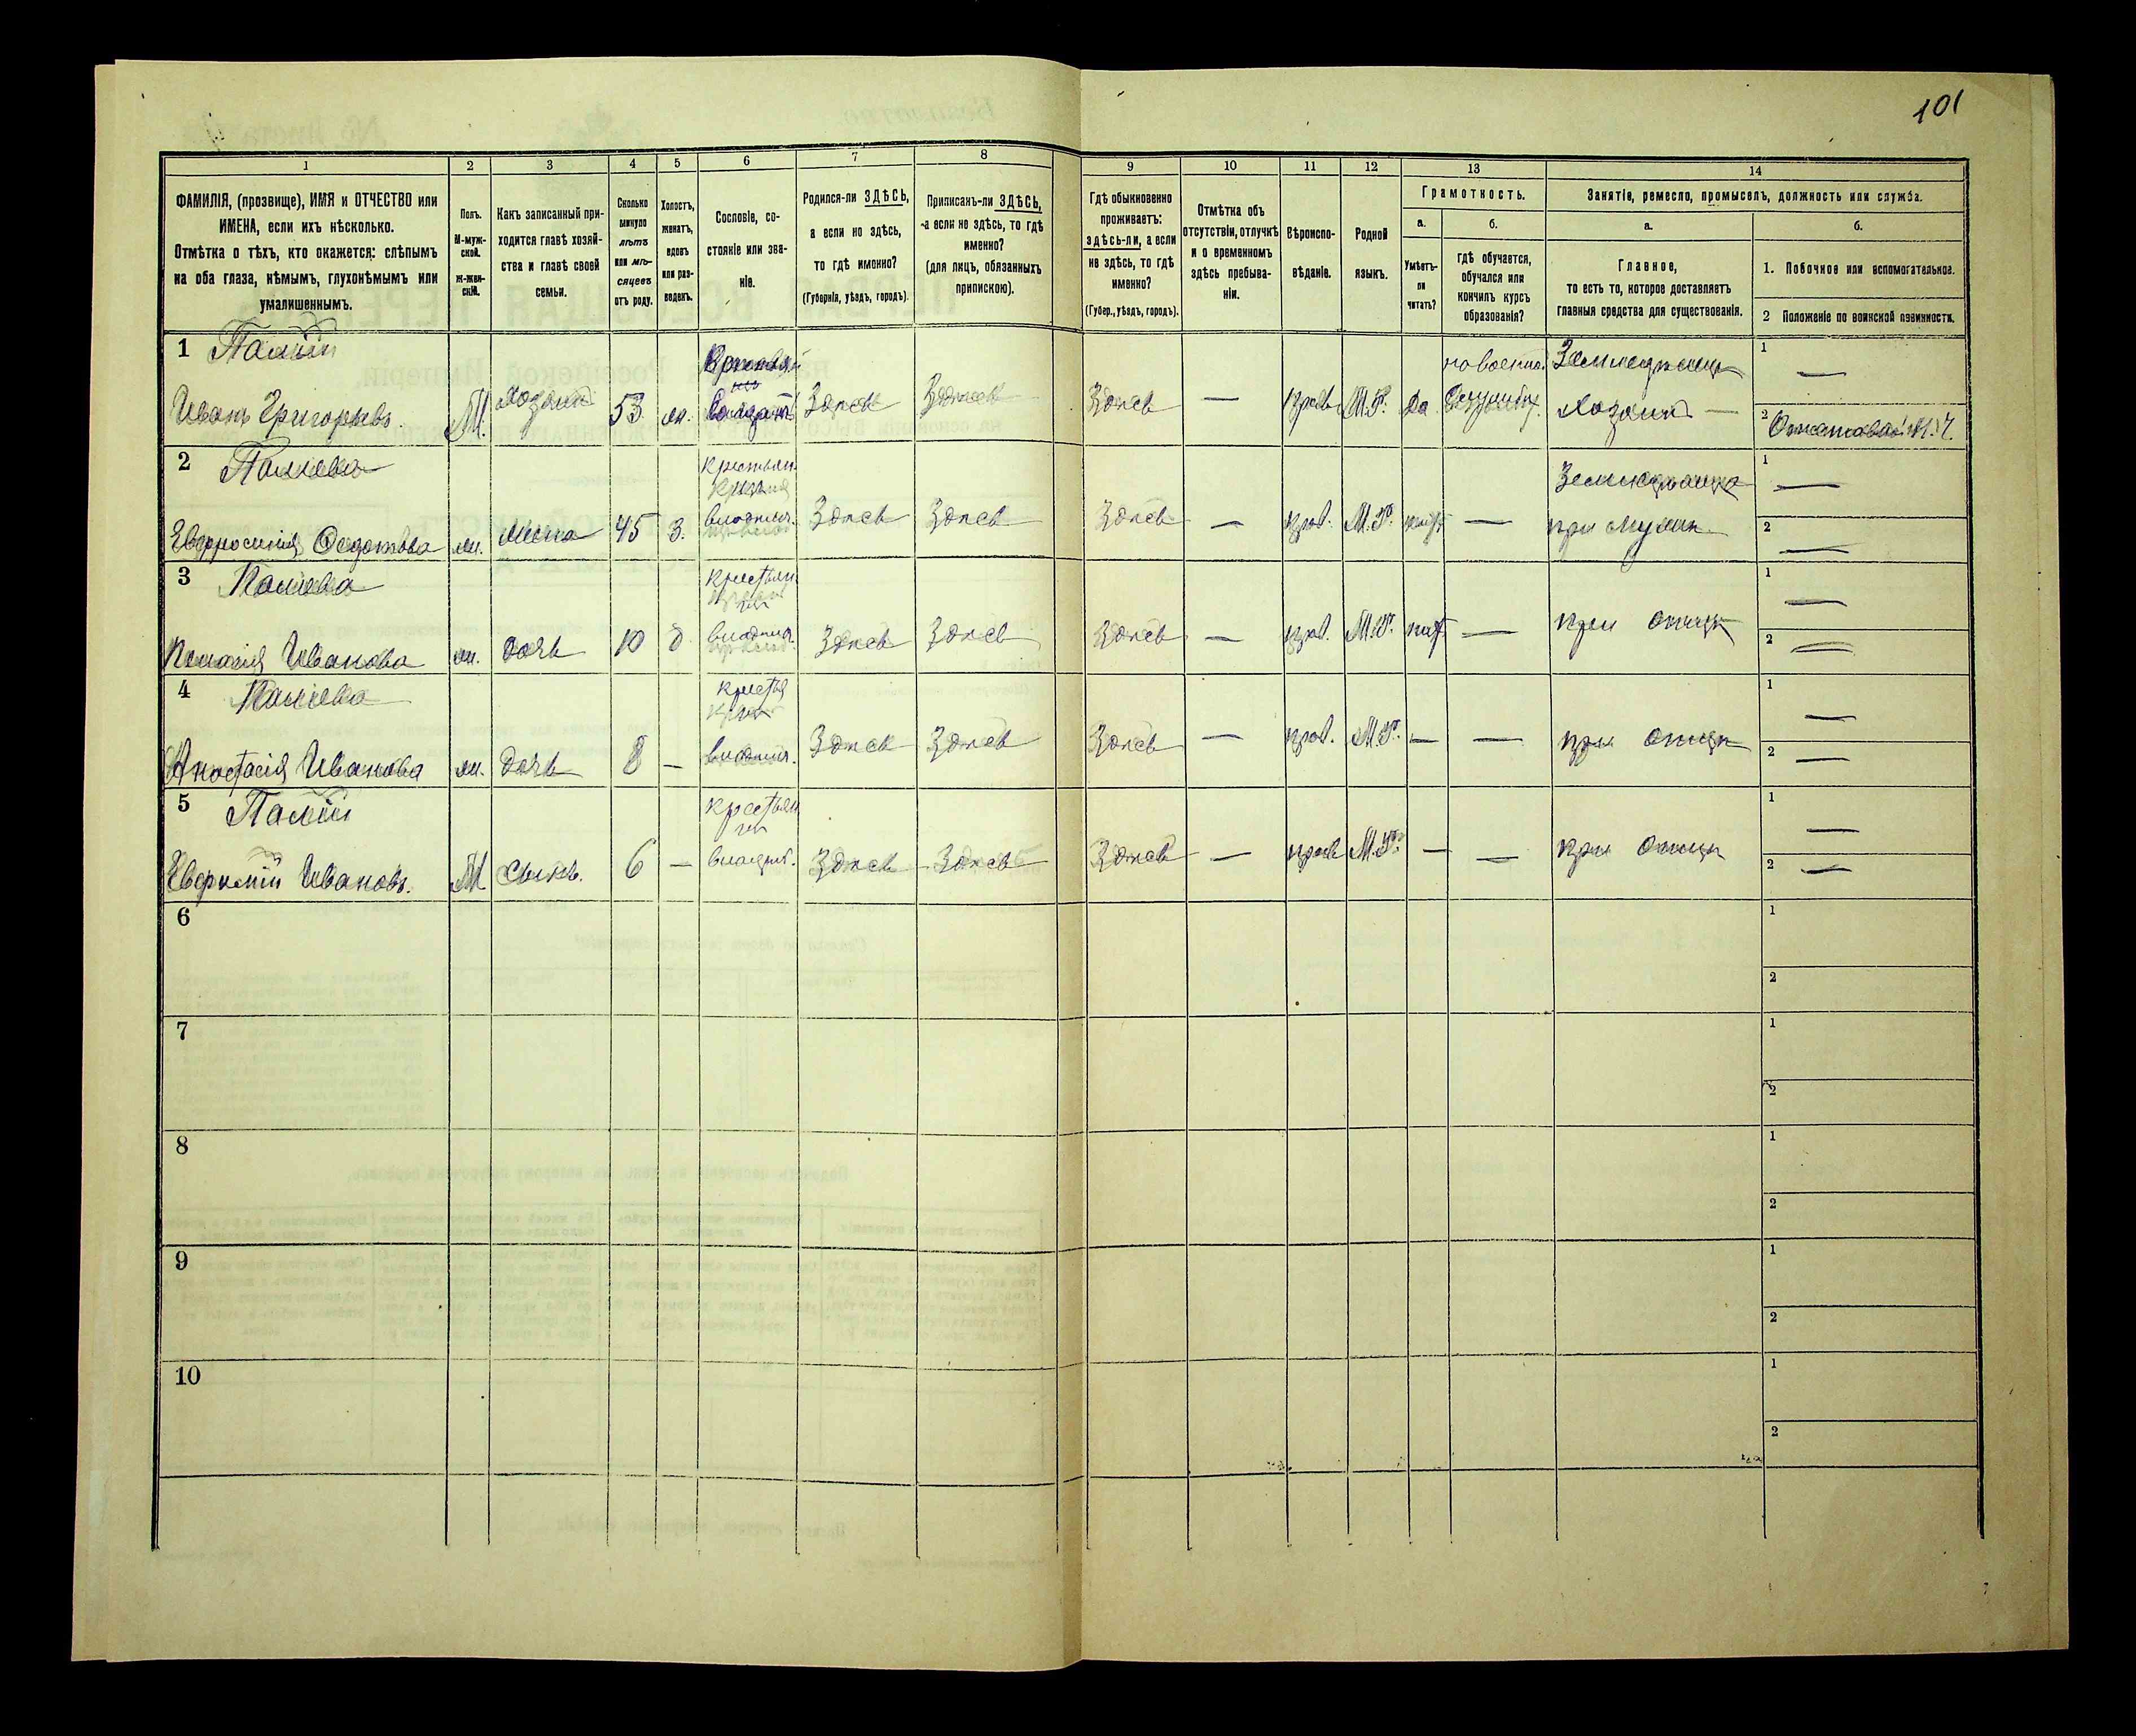 101
1
2
3
4
5
6
7
8
9
10
11
12
13
14
ФАМИЛІЯ, (прозвище), ИМЯ и ОТЧЕСТВО или
ИМЕНА, если ихъ нѣсколько.
Отмѣтка о тѣхъ, кто окажется: слѣпымъ
на оба глаза, нѣмымъ, глухонѣмымъ или
умалишеннымъ.
Полъ.
М-муж-
ской.
ж-жен-
скій.
Какъ записанный при-
ходится главѣ хозяй-
ства и главѣ своей
семьи.
Сколько
минуло
лѣтъ
или мѣ-
сяцевъ
отъ роду.
Холостъ,
женатъ,
вдовъ
или раз-
веденъ.
Сословіе, со-
стояніе или зва-
ніе.
Родился-ли ЗДѢСЬ,
а если не здѣсь,
то гдѣ именно?
(Губернія, уѣздъ, городъ).
Приписанъ-ли ЗДѢСЬ,
а если не здѣсь, то гдѣ
именно?
(для лицъ, обязанныхъ
припискою).
Гдѣ обыкновенно
проживаетъ:
здѣсь-ли, а если
не здѣсь, то гдѣ
именно?
(Губер., уѣздъ, городъ).
Отмѣтка объ
отсутствіи, отлучкѣ
и о временномъ
здѣсь пребыва-
ніи.
Вѣроиспо-
вѣданіе.
Родной
языкъ.
Грамотность.
а.
Умѣетъ-
ли
читать?
б.
гдѣ обучается,
обучался или
кончилъ курсъ
образованія?
Занятія, ремесло, промыселъ, должность или служба.
а.
Главное,
то есть то, которое доставляетъ
главныя средства для существованія.
б.
1. Побочное или вспомогательное.
2 Положеніе по воинской повинности.
1 Палій
Иванъ Григорьевъ М. Хозяинъ 53 ж. Здѣсь Здѣсь Здѣсь — прав. М.Р. Да Земледѣлецъ
хозяинъ —
1 —
2
2 Паліева
Евфросинія Федотова ж. жена 45 з. крестьян.
владѣл. Здѣсь Здѣсь Здѣсь — прав. М.Р. нѣт —
при мужѣ
1 —
2 —
3 Паліева
Ивановa ж. дочь 10 д. крестьян
владѣл. Здѣсь Здѣсь Здѣсь — прав. М.Р. нѣт — при отцѣ
1 —
2 —
4 Паліева
Анастасія Иванова ж. дочь 8 — крестья
владѣл. Здѣсь Здѣсь Здѣсь — прав. М.Р. — — при отцѣ
1 —
2 —
5 Палій
Ивановъ. М сынъ. 6 — крестьян
Здѣсь Здѣсь Здѣсь — прав М.Р. — — при отцѣ
1 —
2 —
6
1
2
7
1
2
8
1
2
9
1
2
10
1
2